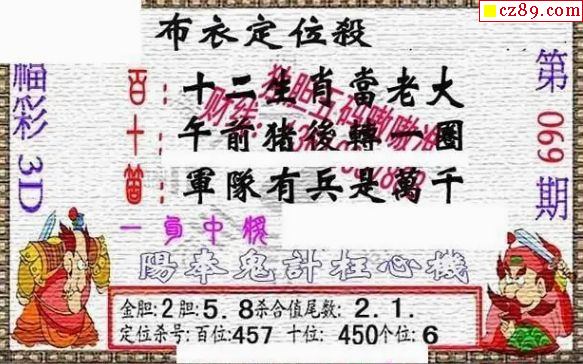 cz89.com
布衣定位殺
福彩3D
第069期
百：十二生肖當老大
十：午前猪後轉一圈
個：軍隊有兵是萬千
陽奉鬼計枉心機
金胆:2胆:5.8杀合值尾数:2.1.
定位杀号:百位:457 十位:450个位:6